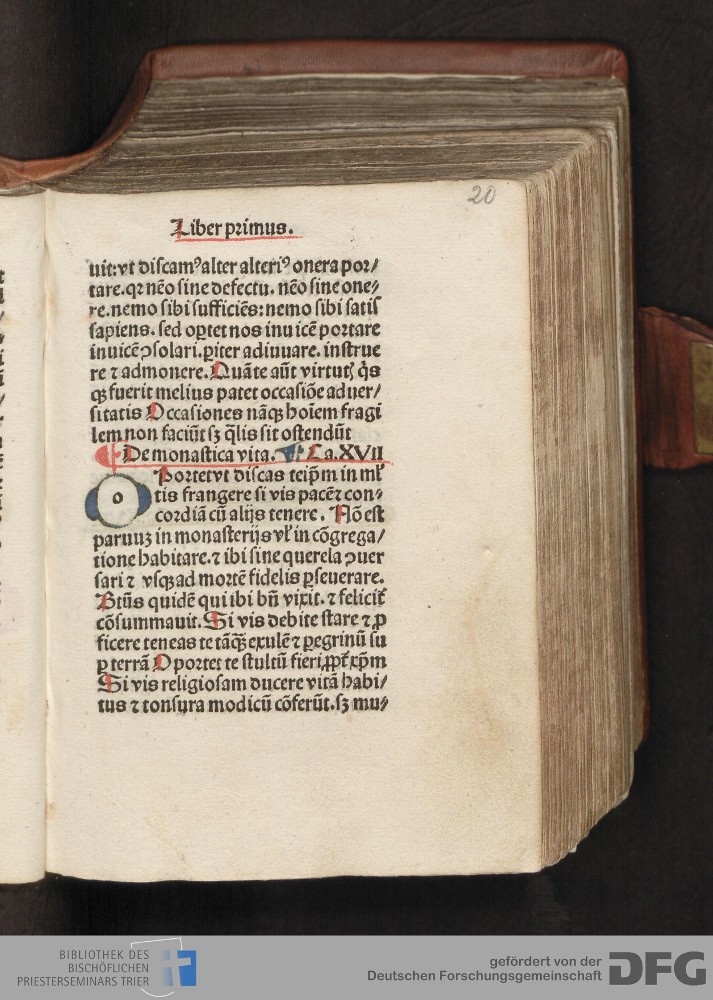 20
Liber primus.
uit: vt discamꝰ alter alteriꝰ onera por/
tare. qꝛ nēo sine defectu. nēo sine one/
re. nemo sibi sufficiēs: nemo sibi satis
sapiens. sed oꝑtet nos inuicē portare
inuicē ꝯsolari. ꝑiter adiuuare. instrue
re ⁊ admonere. Quāte aūt virtutꝭ q̇s
qꝫ fuerit melius patet occasiōe aduer/
sitatis Occasiones nāqꝫ hoīem fragi
lem non faciūt sꝫ q̄lis sit ostendūt
De monastica vita. Ca. XVII
Oportet vt discas teip̄m in ml̓
tis frangere si vis pacē ⁊ con-
cordiā cū alijs tenere. Nō est
paruuꝫ in monasterijs vl̓ in cōgrega/
tione habitare. ⁊ ibi sine querela ꝯuer
sari ⁊ vsqꝫ ad mortē fidelis ꝑseuerare.
Btūs quidē qui ibi bn̄ vixit. ⁊ felicit̄
cōsummauit. Si vis debite stare ⁊ ꝓ
ficere teneas te tāqꝫ exulē ⁊ ꝑegrinū su
ꝑ terrā Oportet te stultū fieri ꝓpt̄ xp̄m
Si vis religiosam ducere vitā habi/
tus ⁊ tonsura modicū cōferūt. sꝫ mu/
BIBLIOTHEK DES
BISCHÖFLICHEN
PRIESTERSEMINARS TRIER
gefördert von der
Deutschen Forschungsgemeinschaft
DFG